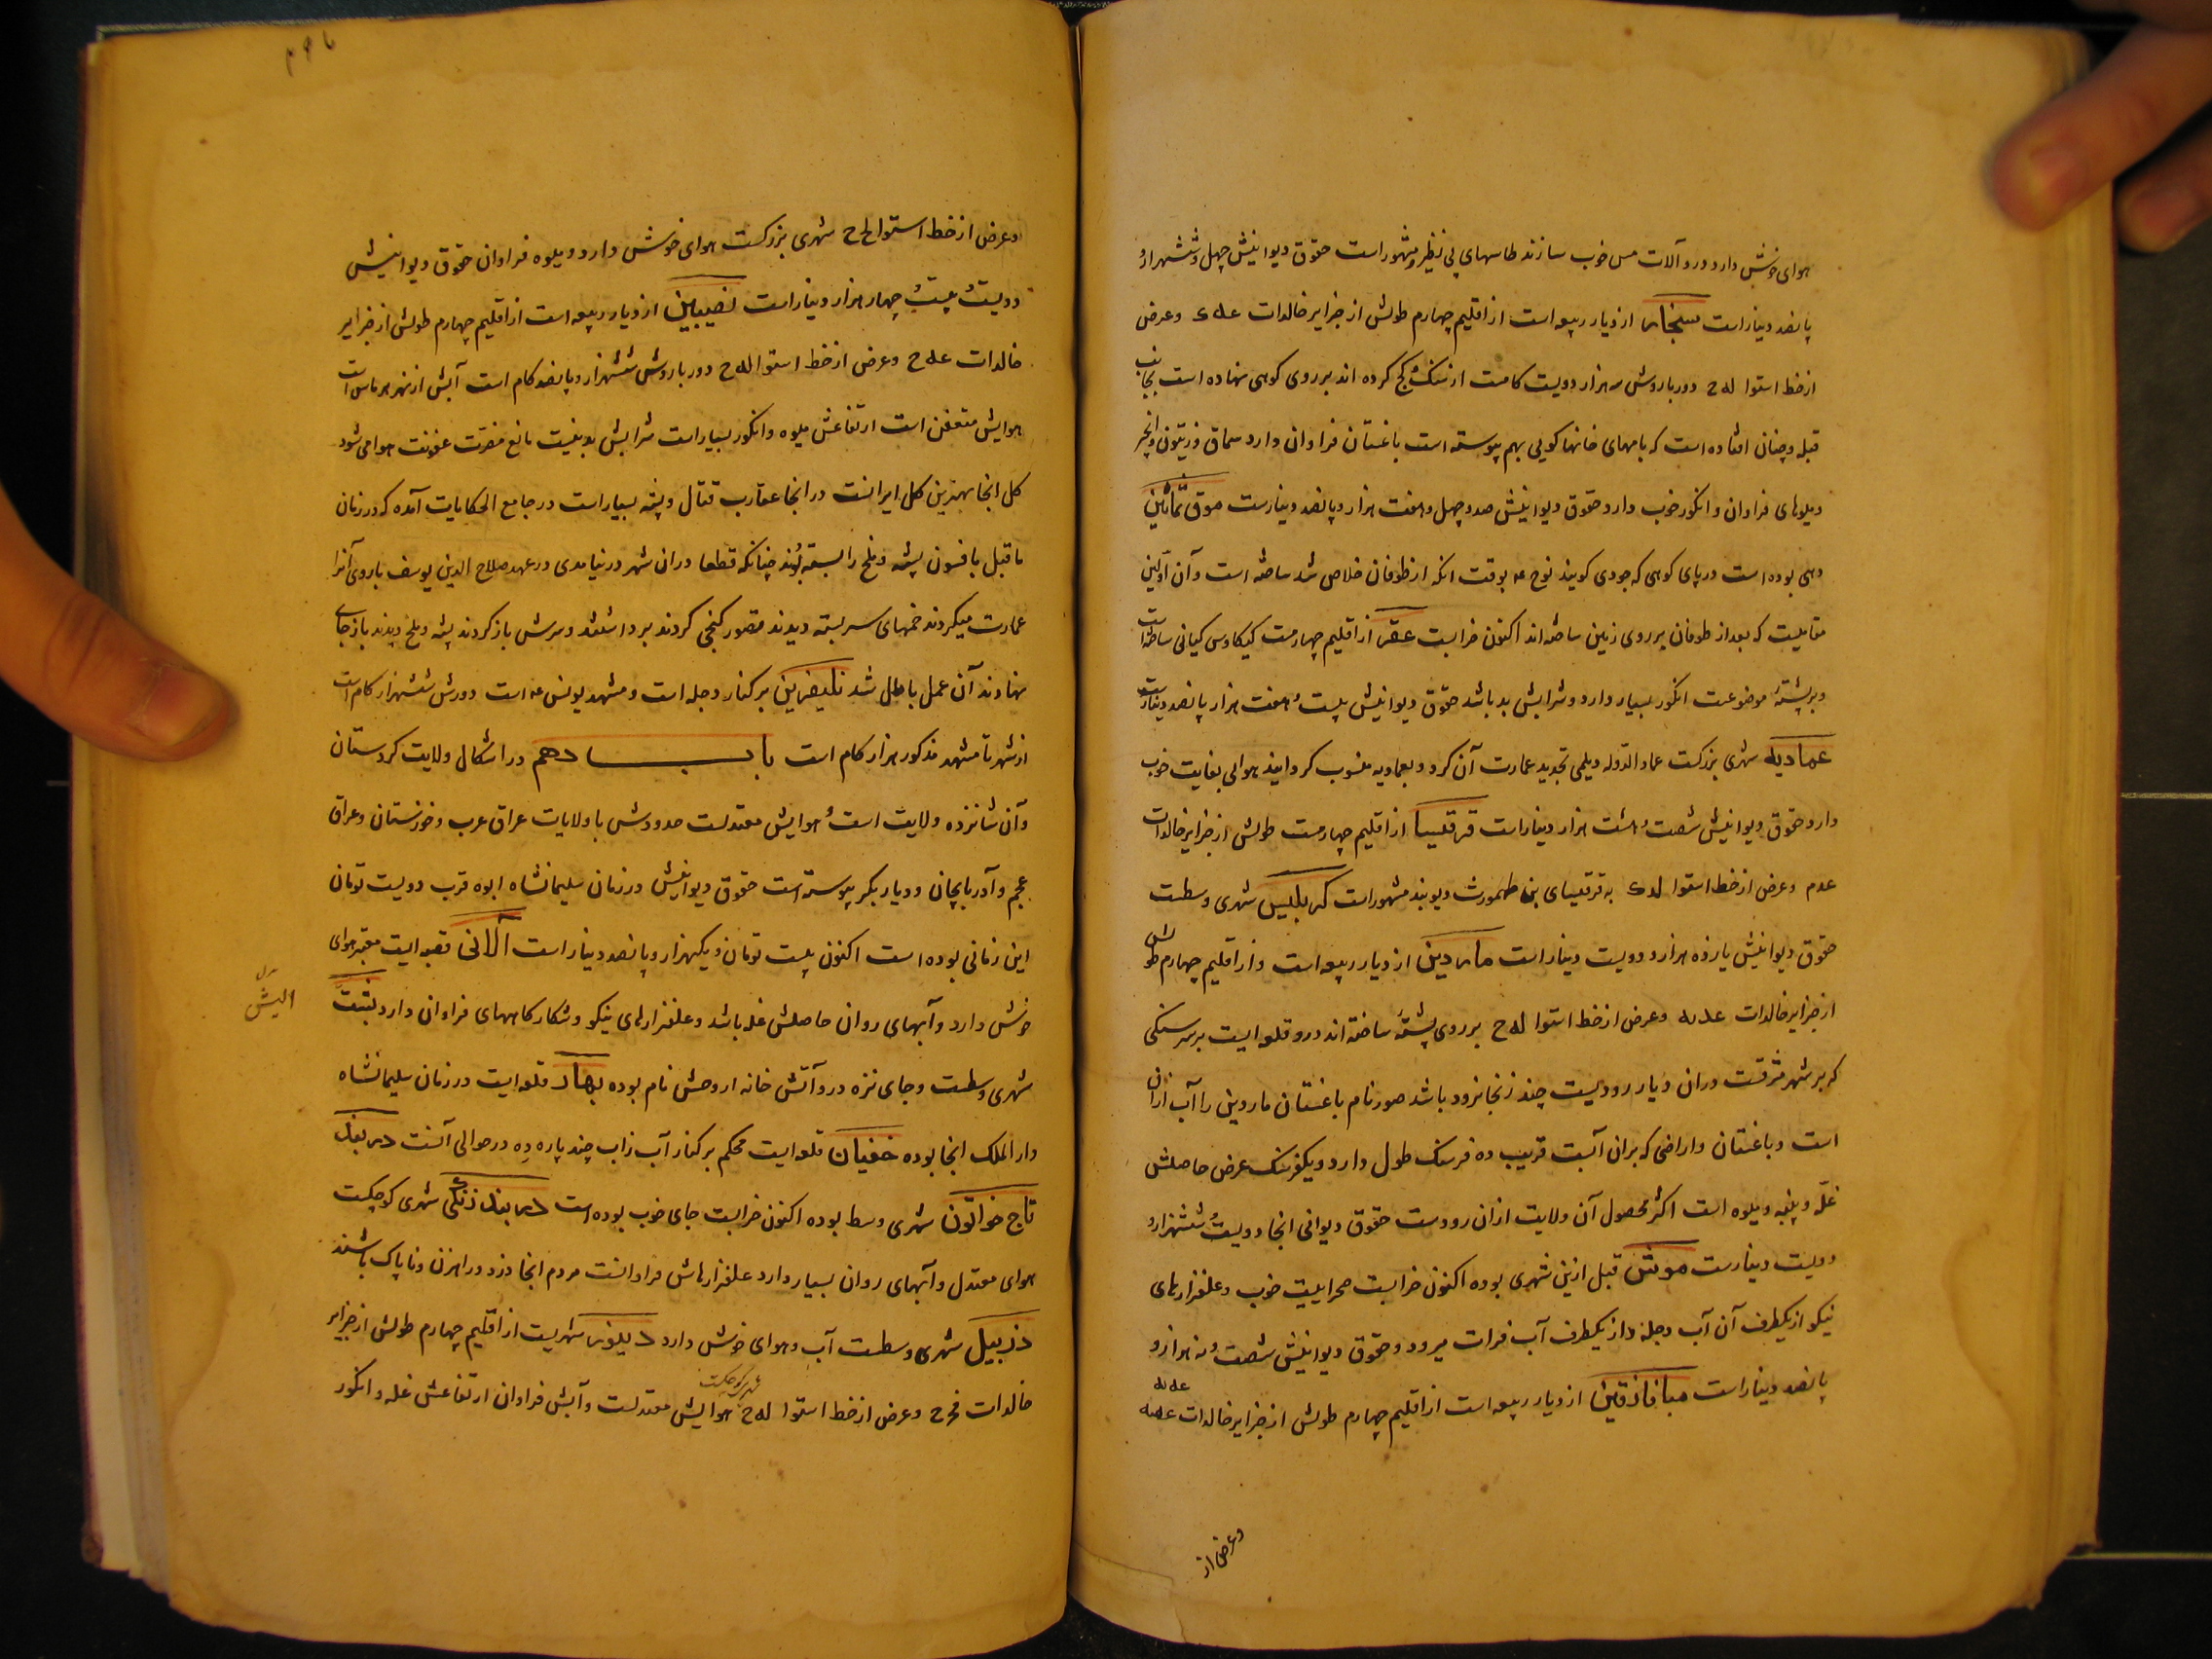 هوای خوش دارد و درو آلات مس خوب سازند طاسهای بی نظیر و مشهور است حقوق دیوانیش چهل و ششهزار و
پانصد دینار است سنجار از دیار ربیعه است از اقلیم چهارم طولش از جزایر خالدات عه و عرض
از خط استوا له ح دور باروش سه هزار دویست کامست از سنک و کج کرده اند بر روی کوهی نهاده است بجانب
قبله و چنان افتاده است که بامهای خانها کویی بهم پیوسته است باغستان فراوان دارد سماق و زیتون و انجیر
و میوهای فراوان و انکور خوب دارد حقوق دیوانیش صد و چهل و هفت هزار و پانصد دینارست سوق ثمانین
دهی بوده است در پای کوهی که جودی کویند نوح عه بوقت انکه از طوفان خلاص شد ساخته است و آن اولین
مقامیست که بعد از طوفان بر روی زمین ساخته اند اکنون خرابست عقر از اقلیم چهارمست کیکاوس کیانی ساخته است
و بر پشته موضوعست انکور بسیار دارد و شرابش بد باشد حقوق دیوانیش بیست و هفت هزار پانصد دینارست
عمادیه شهری بزرکست عماد الدوله دیلمی تجدید عمارت آن کرد و بعمادیه منسوب کردانید هوای بغایت خوب
دارد حقوق دیوانیش شصت و هشت هزار دینار است قرقیسا از اقلیم چهارمست طولش از جزایر خالدات
عدم و عرض از خط استوا لد به قرقیسای بن طهمورث دیوبند مشهور است کرملیس شهری وسطست
حقوق دیوانیش یازده هزار و دویست دینار است ماردین از دیار ربیعه است و از اقلیم چهارم طولش
از جزایر خالدات عد له و عرض از خط استوا له ح بر روی پشته ساخته اند درو قلعه ایست بر سر سنکی
که بر شهر مشرفست دران دیار رودیست چند زنجانرود باشد صور نام باغستان ماردین را آب ازان
است و باغستان و اراضی که بران آبست قریب ده فرسنک طول دارد و یکفرسنک عرض حاصلش
غله و پنبه و میوه است اکثر محصول آن ولایت ازان رودست حقوق دیوانی انجا دویست و ششهزار و
دویست دینارست موش قبل ازین شهری بوده اکنون خرابست صحراییست خوب و علفزارهای
نیکو از یکطرف آن آب دجله و از یکطرف آب فرات میرود و حقوق دیوانیش شصت و نه هزار و
پانصد دینار است میافارقین از دیار ربیعه است از اقلیم چهارم طولش از جزایر خالدات عد له
و عرض از
و عرض از خط استوا لح ح شهری بزرکست هوای خوش دارد و میوه فراوان حقوق دیوانیش
دویست و بیست و چهار هزار دینار است نصیبین از دیار ربیعه است از اقلیم چهارم طولش از جزایر
خالدات عه ح و عرض از خط استوا له ح دور باروش ششهزار و پانصد کام است آبش از نهر هرماس است
هوایش متعفن است ارتفاعش میوه و انکور بسیار است شرابش بدنیست مانع مضرت عفونت هوا می شود
کل انجا بهترین کل ایرانست در انجا عقارب قتال و پشه بسیار است در جامع الحکایات آمده که در زمان
ماقبل بافسون پشه و ملخ را بسته بودند چنانکه قطعا دران شهر در نیامدی در عهد صلاح الدین یوسف باروی آنرا
عمارت میکردند خمهای سر بسته دیدند تصور کنجی کردند برداشتند و سرش باز کردند پشه و ملخ دیدند باز جای
نهادند آن عمل باطل شد نینوی بر کنار دجله است و مشهد یونس عه است دورش ششهزار کام است
از شهر تا مشهد مذکور هزار کام است باب دهم در اشکال ولایت کردستان
و آن شانزده ولایت است و هوایش معتدلست حدودش با ولایات عراق عرب و خوزستان و عراق
عجم و آذربایجان و دیار بکر پیوسته است حقوق دیوانیش در زمان سلیمانشاه ابوه قرب دویست تومان
این زمانی بوده است اکنون بیست تومان و یکهزار و پانصد دینار است آلانی قصبه ایست معتبر هوای
خوش دارد و آبهای روان حاصلش غله باشد و علفزارهای نیکو و شکارکاههای فراوان دارد
الیش
شهری وسطست و جای نزه درو آتش خانه اروحش نام بوده بهار قلعه ایست در زمان سلیمانشاه
دار الملک انجا بوده خفتیان قلعه ایست محکم بر کنار آب زاب چند پاره ده در حوالی آنست دربند
تاج خواتون شهری وسط بوده اکنون خرابست جای خوب بوده است دربند زنکی شهری کوچکست
هوای معتدل و آبهای روان بسیار دارد علفزارهاش فراوانست مردم انجا دزد و راهزن و ناپاک باشند
دزبیل شهری وسطست آب و هوای خوش دارد دینور شهریست از اقلیم چهارم طولش از جزایر
شهری کوچکست
خالدات فح ح و عرض از خط استوا له ح هوایش معتدلست و آبش فراوان ارتفاعش غله و انکور